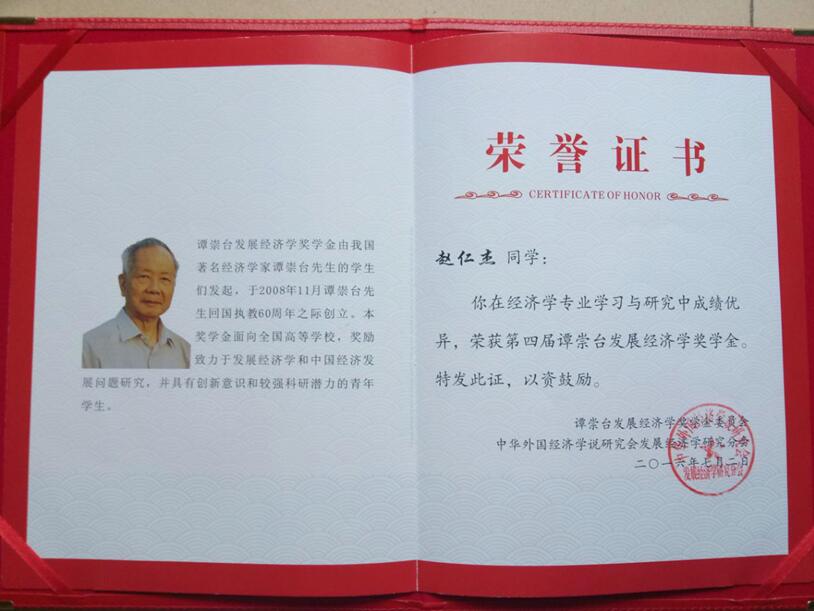 谭崇台发展经济学奖学金由我国
著名经济学家谭崇台先生的学生
们发起，于2008年11月谭崇台先
生回国执教60周年之际创立。本
奖学金面向全国高等学校，奖励
致力于发展经济学和中国经济发
展问题研究，并具有创新意识和较强科研潜力的青年
学生。
荣誉证书
CERTIFICATE OF HONOR
赵仁杰 同学：
你在经济学专业学习与研究中成绩优
异，荣获第四届谭崇台发展经济学奖学金。
特发此证，以资鼓励。
谭崇台发展经济学奖学金委员会
中华外国经济学说研究会发展经济学研究分会
二〇一六年七月二日
发展经济学研究分会